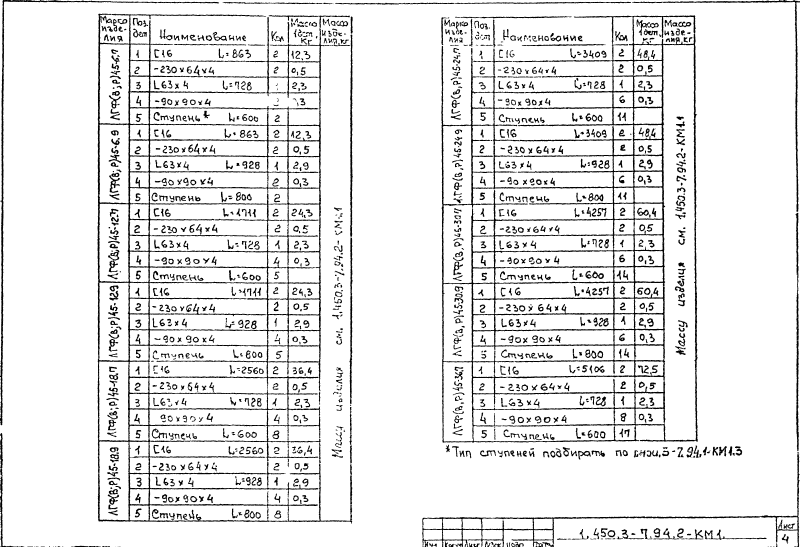 Марка изделия Поз. дет Наименование Кол Масса 1дет, кг Масса изделия, кг
ЛГФ(В;Р)45-6.7
1 С16 L=863 2 12,3
2 -230×64×4 2 0,5
3 L63×4 L=728 2,3
4 -90×90×4 2 0,3
5 Ступень* L=600 2
ЛГФ(В;Р)45-6.9
1 С16 L=863 2 12,3
2 -230×64×4 2 0,5
3 L63×4 L=928 1 2,9
4 -90×90×4 2 0,3
5 Ступень L=800 2
ЛГФ(В;Р)45-12.7
1 С16 L=1711 2 24,3
2 -230×64×4 2 0,5
3 L63×4 L=728 1 2,3
4 -90×90×4 4 0,3
5 Ступень L=600 5
ЛГФ(В;Р)45-12.9
1 С16 L=1711 2 24,3
2 -230×64×4 2 0,5
3 L63×4 L=928 1 2,9
4 -90×90×4 4 0,3
5 Ступень L=800 5
ЛГФ(В;Р)45-18.7
1 С16 L=2560 2 36,4
2 -230×64×4 2 0,5
3 L63×4 L=728 1 2,3
4 90×90×4 4 0,3
5 Ступень L=600 8
ЛГФ(В;Р)45-18.9
1 С16 L=2560 2 36,4
2 -230×64×4 2 0,5
3 L63×4 L=928 1 2,9
4 -90×90×4 4 0,3
5 Ступень L=800 8
Массу изделия см. 1.450.3-7.94.2-КМ1.1
Марка изделия Поз. дет Наименование Кол. Масса 1дет, кг Масса изделия, кг
ЛГФ(В;Р)45-24.7
1 С16 L=3409 2 48,4
2 -230×64×4 2 0,5
3 L63×4 L=728 1 2,3
4 -90×90×4 6 0,3
5 Ступень L=600 11
ЛГФ(В;Р)45-24.9
1 С16 L=3409 2 48,4
2 -230×64×4 2 0,5
3 L63×4 L=928 1 2,9
4 -90×90×4 6 0,3
5 Ступень L=800 11
ЛГФ(В;Р)45-30.7
1 С16 L=4257 2 60,4
2 -230×64×4 2 0,5
3 L63×4 L=728 1 2,3
4 -90×90×4 6 0,3
5 Ступень L=600 14
ЛГФ(В;Р)45-30.9
1 С16 L=4257 2 60,4
2 -230×64×4 2 0,5
3 L63×4 L=928 1 2,9
4 -90×90×4 6 0,3
5 Ступень L=800 14
ЛГФ(В;Р)45-36.7
1 С16 L=5106 2 72,5
2 -230×64×4 2 0,5
3 L63×4 L=728 1 2,3
4 -90×90×4 8 0,3
5 Ступень L=600 17
Массу изделия см. 1.450.3-7.94.2-КМ1.1
*Тип ступеней подбирать по
1.450.3-7.94.2-КМ1.
Лист
4